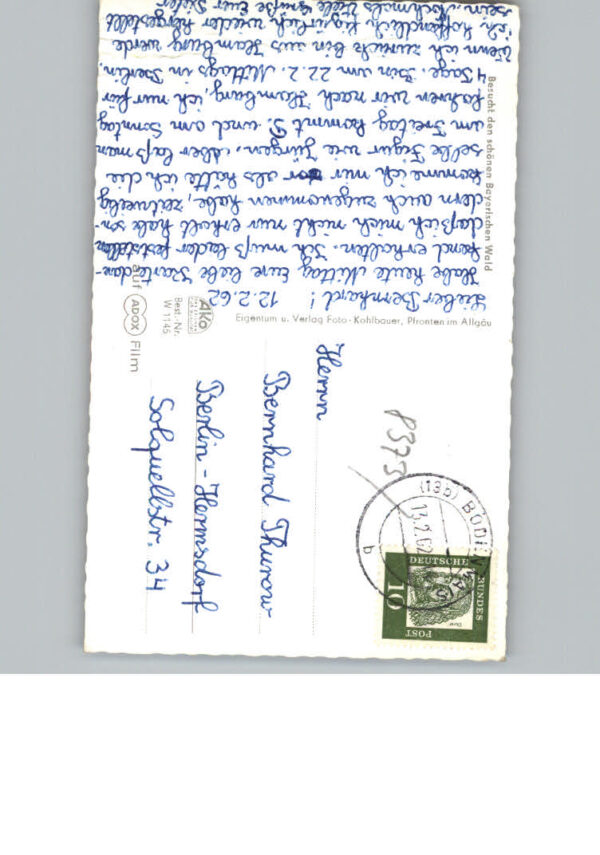 12.2.62
Lieber Bernhard!
Habe heute Mittag Eure liebe Karte dan-
kend erhalten. Ich muß leider feststellen
daß ich mich nicht nur erholt habe son-
dern auch zugenommen habe, zeitweilig
komme ich mir vor als hätte ich die
selbe Figur wie Jürgen. Aber laß man
am Freitag kommt P. und am Sonntag
fahren wir nach Hamburg, ich nur für
4 Tage. Bin am 22.2. Mittags in Berlin.
Wenn ich zurück bin aus Hamburg werde
ich hoffendlich figürlich wieder hergestellt
sein. Nochmals viele Grüße Euer Dieter
Besucht den schönen Bayerischen Wald
Eigentum u. Verlag Foto-Kohlbauer, Pfronten im Allgäu
Ako
Best.-Nr.
W 1145
auf ADOX Film
Herrn
Bernhard Thurow
Berlin-Hermsdorf
Solquellstr. 34
8373
(13b) BODENMAIS
13.2.62
b
DEUTSCHE
BUNDES
POST
10